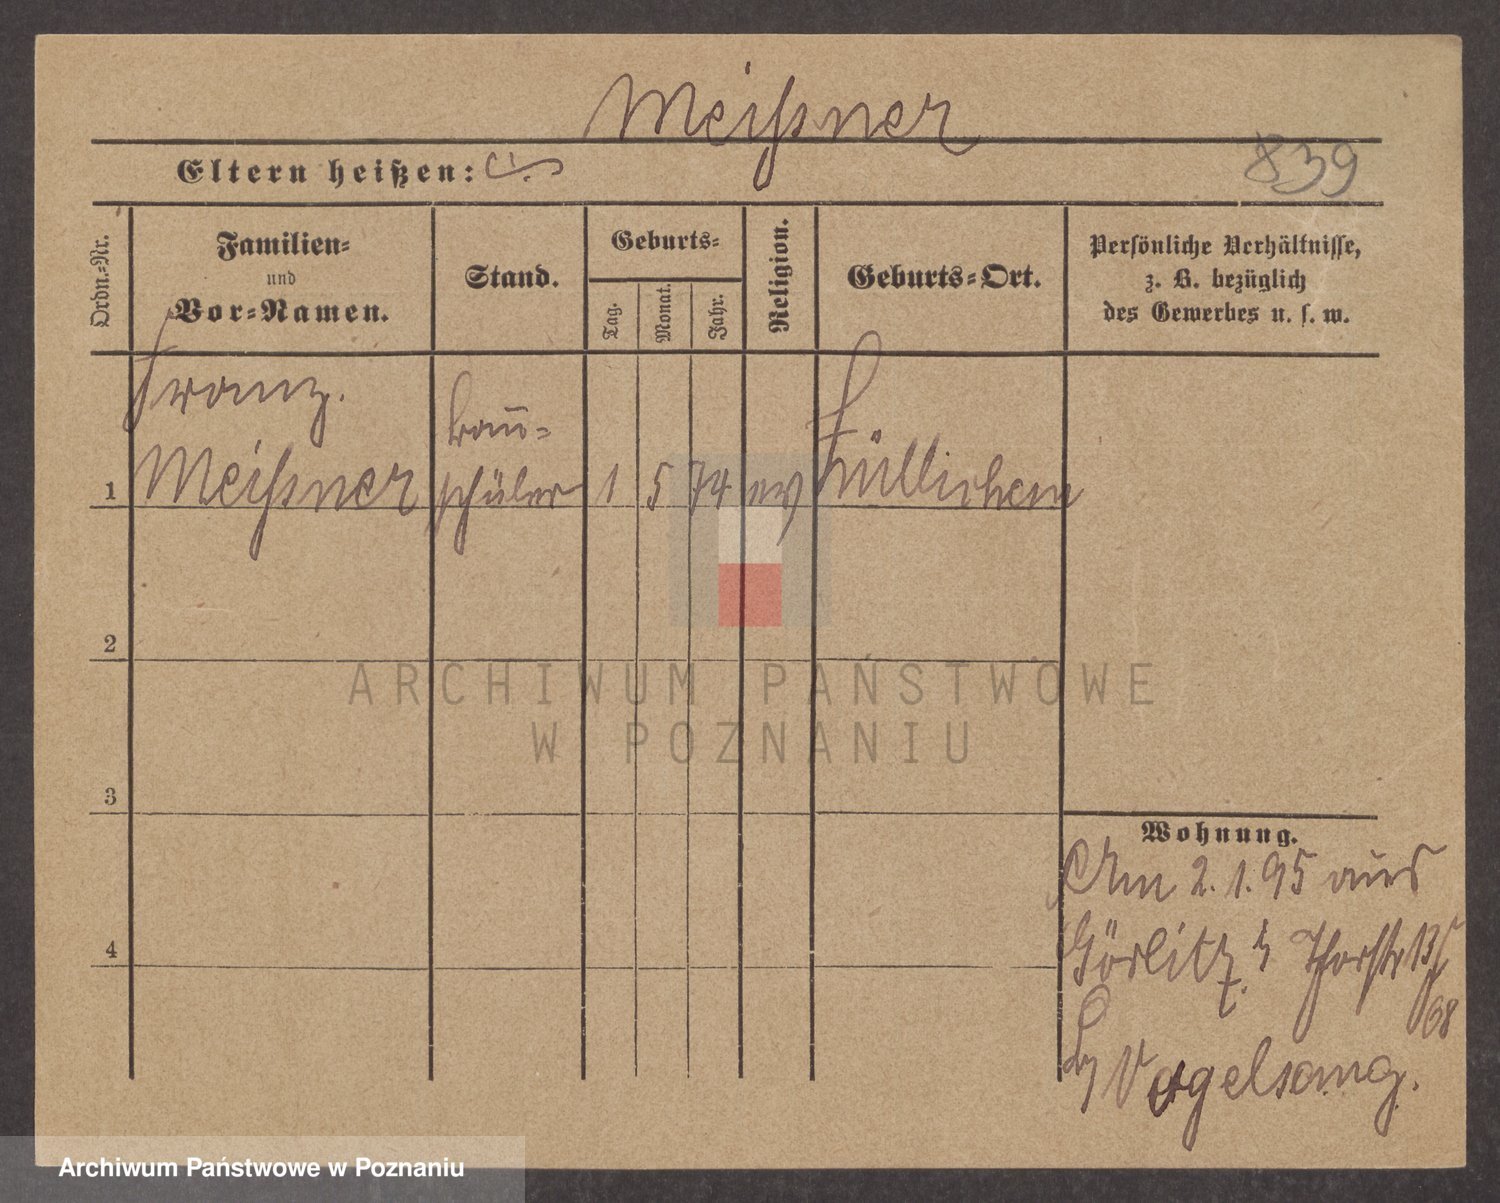 Meißner
Eltern heißen:
839
Ordn.-Nr.
Familien-
und
Vor-Namen.
Stand.
Geburts-
Tag.
Monat.
Jahr.
Religion.
Geburts-Ort.
Persönliche Verhältnisse,
z. B. bezüglich
des Gewerbes u. s. w.
Franz.
Meißner
Bau-
schüler
1
1 5 74 ev
2
3
4
Wohnung.
Am 2.1.95 aus
Görlitz Thorstr 13
68
Vogelsang.
ARCHIWUM PAŃSTWOWE
W POZNANIU
Archiwum Państwowe w Poznaniu